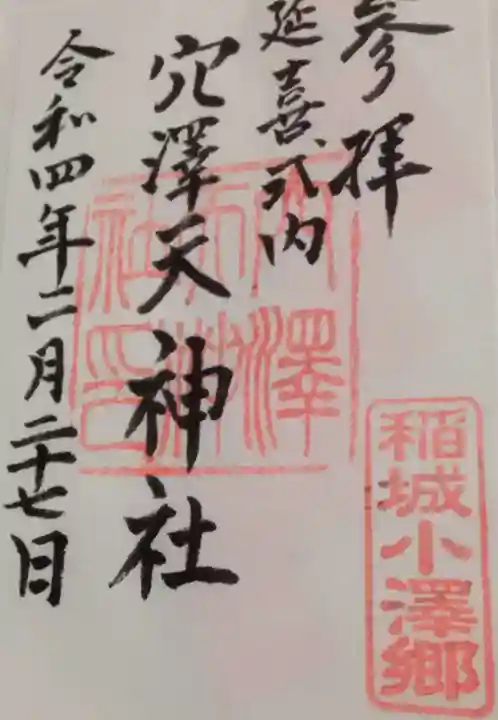 参拝
延喜式内
穴澤天神社
令和四年二月二十七日
穴澤天神社印
稲城小澤郷